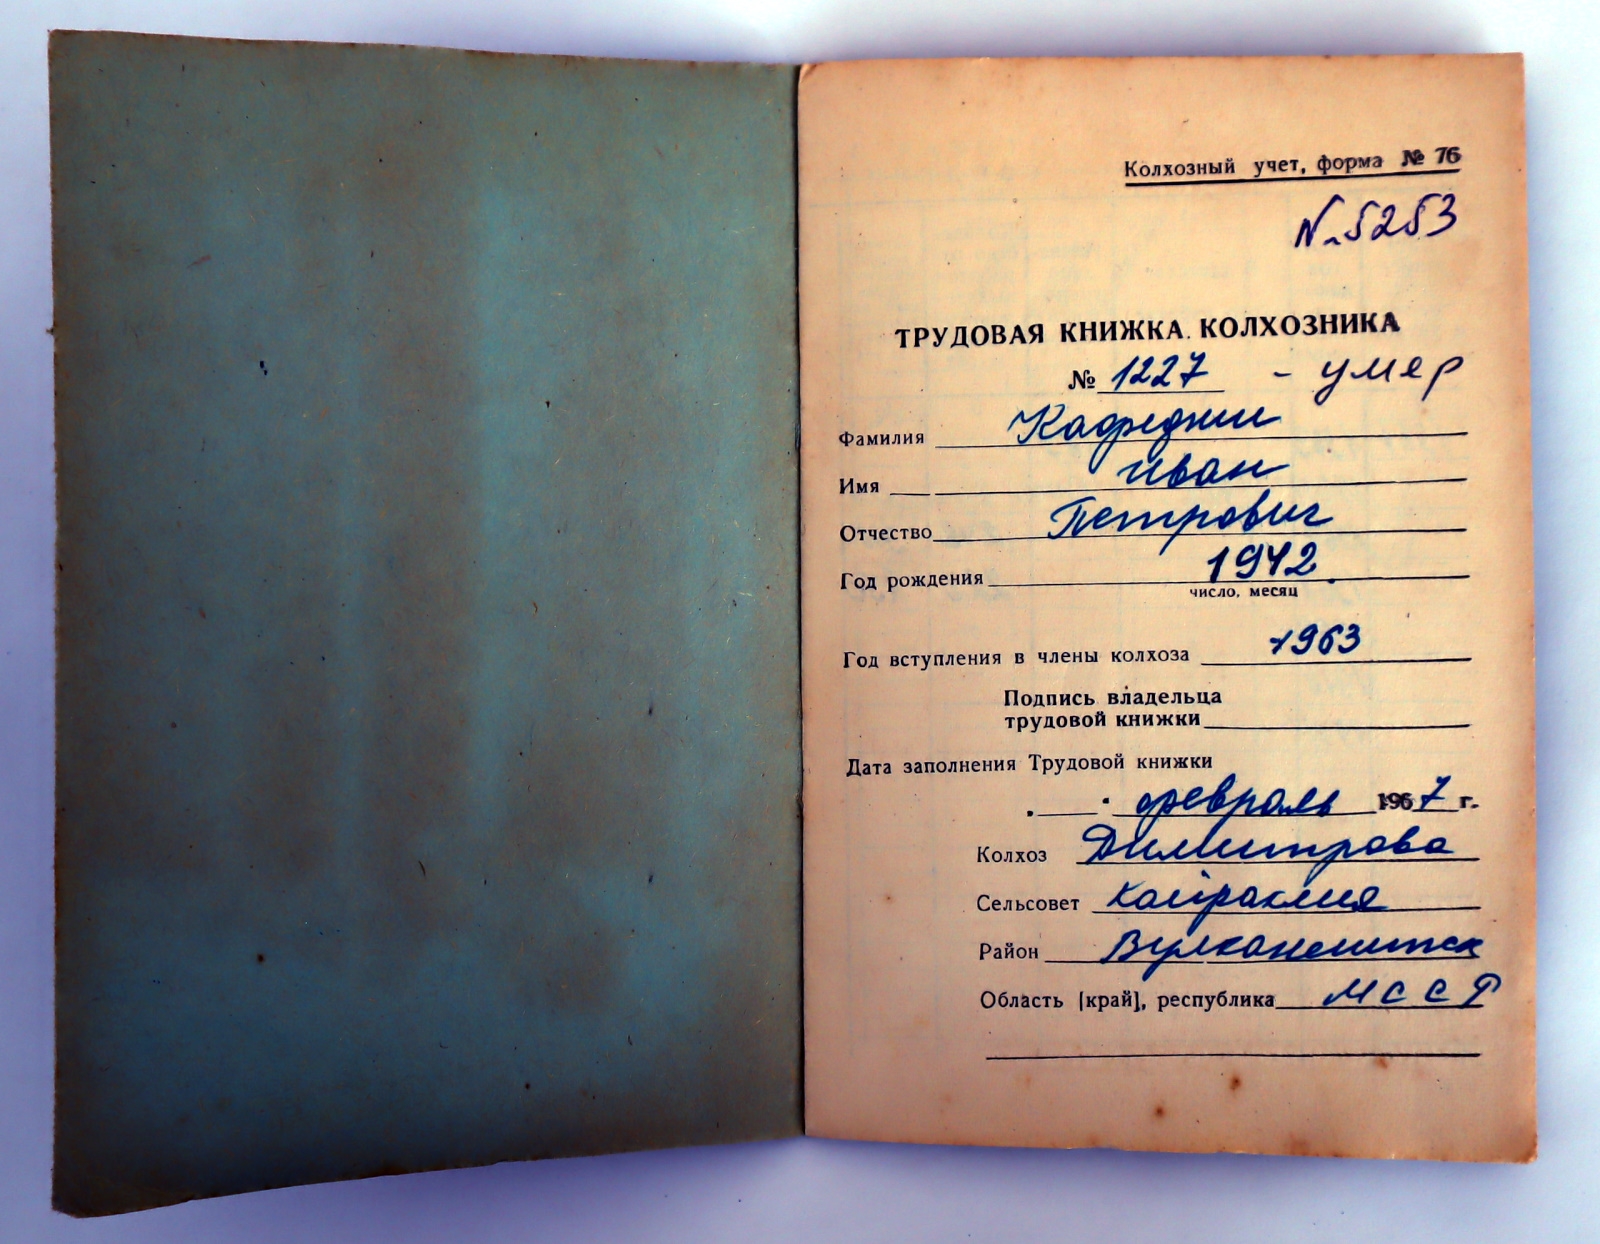 Колхозный учет, форма № 76
N. 5253
ТРУДОВАЯ КНИЖКА КОЛХОЗНИКА
№ 1227 - умер
Фамилия
Имя Иван
Отчество Петрович
Год рождения 1942
число, месяц
Год вступления в члены колхоза 1963
Подпись владельца
трудовой книжки
Дата заполнения Трудовой книжки
февраль 1967 г.
Колхоз Димитрова
Сельсовет Кайраклия
Район Вулканештск
Область [край], республика МССР